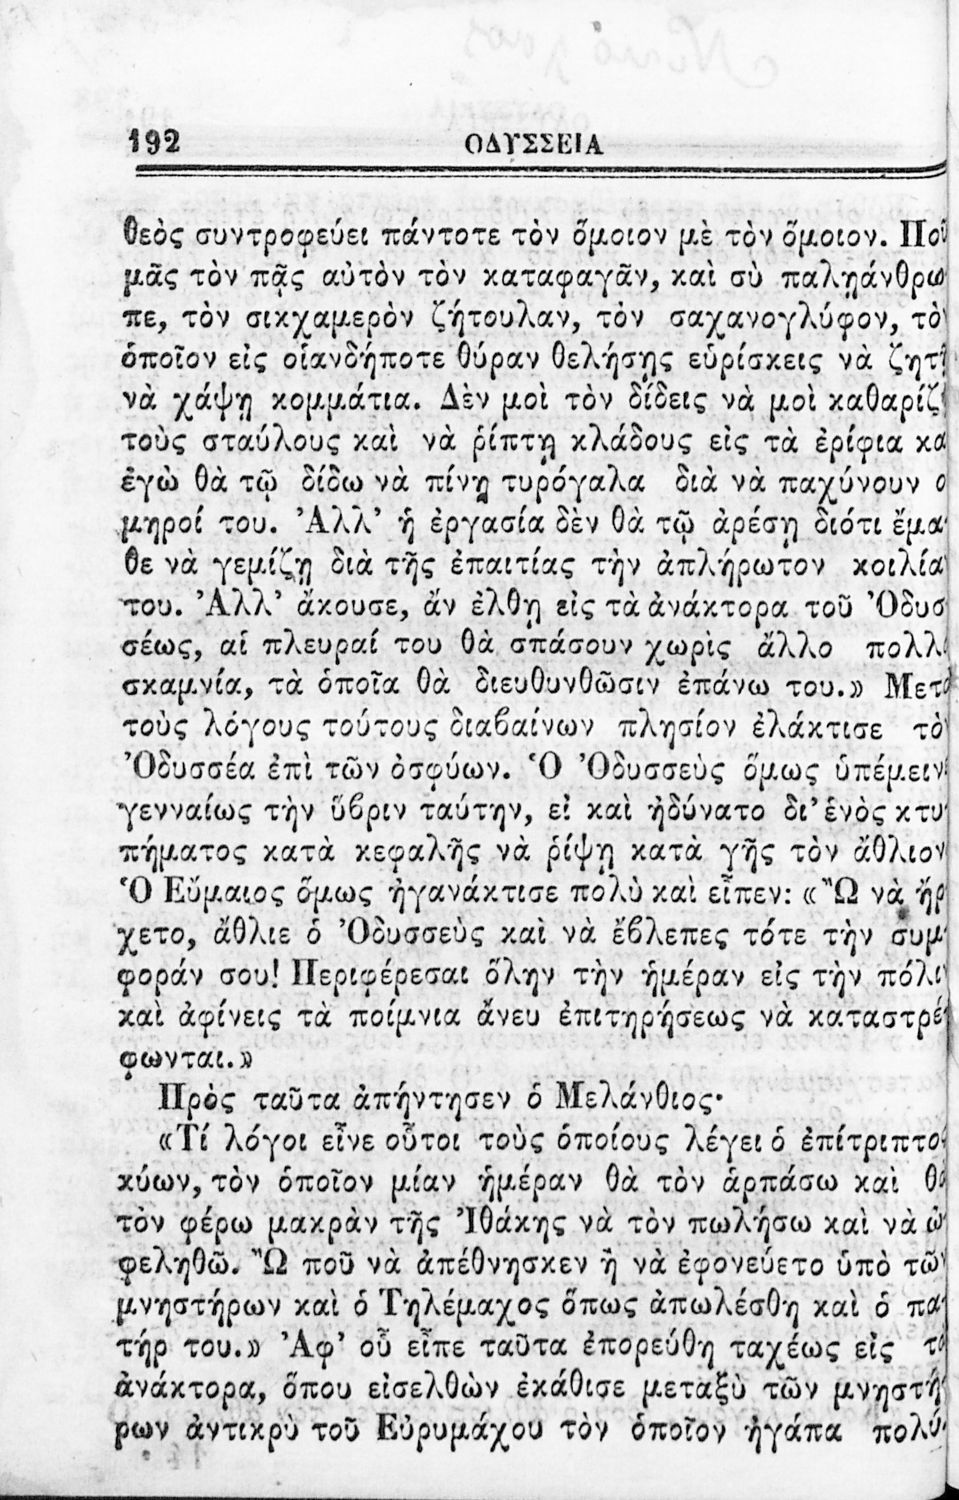 192 ΟΔΥΣΣΕΙΑ
θεὸς συντροφεύει πάντοτε τὸν ὅμοιον μὲ τὸν ὅμοιον. Ποῦ
μᾶς τὸν πᾷς αὐτὸν τὸν καταφαγᾶν, καὶ σὺ παληάνθρω
πε, τὸν σικχαμερὸν ζήτουλαν, τὸν σαχανογλύφον, τὸν
ὁποῖον εἰς οἱανδήποτε θύραν θελήσῃς εὑρίσκεις νὰ ζητῇ
νὰ χάψῃ κομμάτια. Δὲν μοὶ τὸν δίδεις νὰ μοὶ καθαρίζῃ
τοὺς σταύλους καὶ νὰ ῥίπτῃ κλάδους εἰς τὰ ἐρίφια κα
ἐγὼ θὰ τῷ δίδω νὰ πίνῃ τυρόγαλα διὰ νὰ παχύνουν ο
μηροί του. Ἀλλ’ ἡ ἐργασία δὲν θὰ τῷ ἀρέσῃ διότι ἔμα-
θε νὰ γεμίζῃ διὰ τῆς ἐπαιτίας τὴν ἀπλήρωτον κοιλία
του. Ἀλλ’ ἄκουσε, ἄν ἐλθῃ εἰς τὰ ἀνάκτορα τοῦ Ὀδυσ
σέως, αἱ πλευραί του θὰ σπάσουν χωρὶς ἄλλο πολλ
σκαμνία, τὰ ὁποῖα θὰ διευθυνθῶσιν ἐπάνω του.» Μετὰ
τοὺς λόγους τούτους διαβαίνων πλησίον ἐλάκτισε τὸν
Ὀδυσσέα ἐπὶ τῶν ὀσφύων. Ὁ Ὀδυσσεὺς ὅμως ὑπέμειν
γενναίως τὴν ὕβριν ταύτην, εἰ καὶ ἠδύνατο δι’ ἑνὸς κτυ-
πήματος κατὰ κεφαλῆς νὰ ῥίψῃ κατὰ γῆς τὸν ἄθλιον
Ὁ Εὔμαιος ὅμως ἠγανάκτισε πολὺ καὶ εἶπεν: «Ὢ νὰ ἤρ
χετο, ἄθλιε ὁ Ὀδυσσεὺς καὶ νὰ ἔβλεπες τότε τὴν συμ-
φοράν σου! Περιφέρεσαι ὅλην τὴν ἡμέραν εἰς τὴν πόλιν
καὶ ἀφίνεις τὰ ποίμνια ἄνευ ἐπιτηρήσεως νὰ καταστρέ-
φωνται.»
Πρὸς ταῦτα ἀπήντησεν ὁ Μελάνθιος·
«Τί λόγοι εἶνε οὗτοι τοὺς ὁποίους λέγει ὁ ἐπίτριπτος
κύων, τὸν ὁποῖον μίαν ἡμέραν θὰ τὸν ἁρπάσω καὶ θὰ
τὸν φέρω μακρὰν τῆς Ἰθάκης νὰ τὸν πωλήσω καὶ νὰ ὠ-
φεληθῶ. Ὢ ποῦ νὰ ἀπέθνησκεν ἢ νὰ ἐφονεύετο ὑπὸ τῶν
μνηστήρων καὶ ὁ Τηλέμαχος ὅπως ἀπωλέσθη καὶ ὁ πα-
τήρ του.» Ἀφ’ οὗ εἶπε ταῦτα ἐπορεύθη ταχέως εἰς τὰ
ἀνάκτορα, ὅπου εἰσελθὼν ἐκάθισε μεταξὺ τῶν μνηστή-
ρων ἀντικρὺ τοῦ Εὐρυμάχου τὸν ὁποῖον ἠγάπα πολύ·